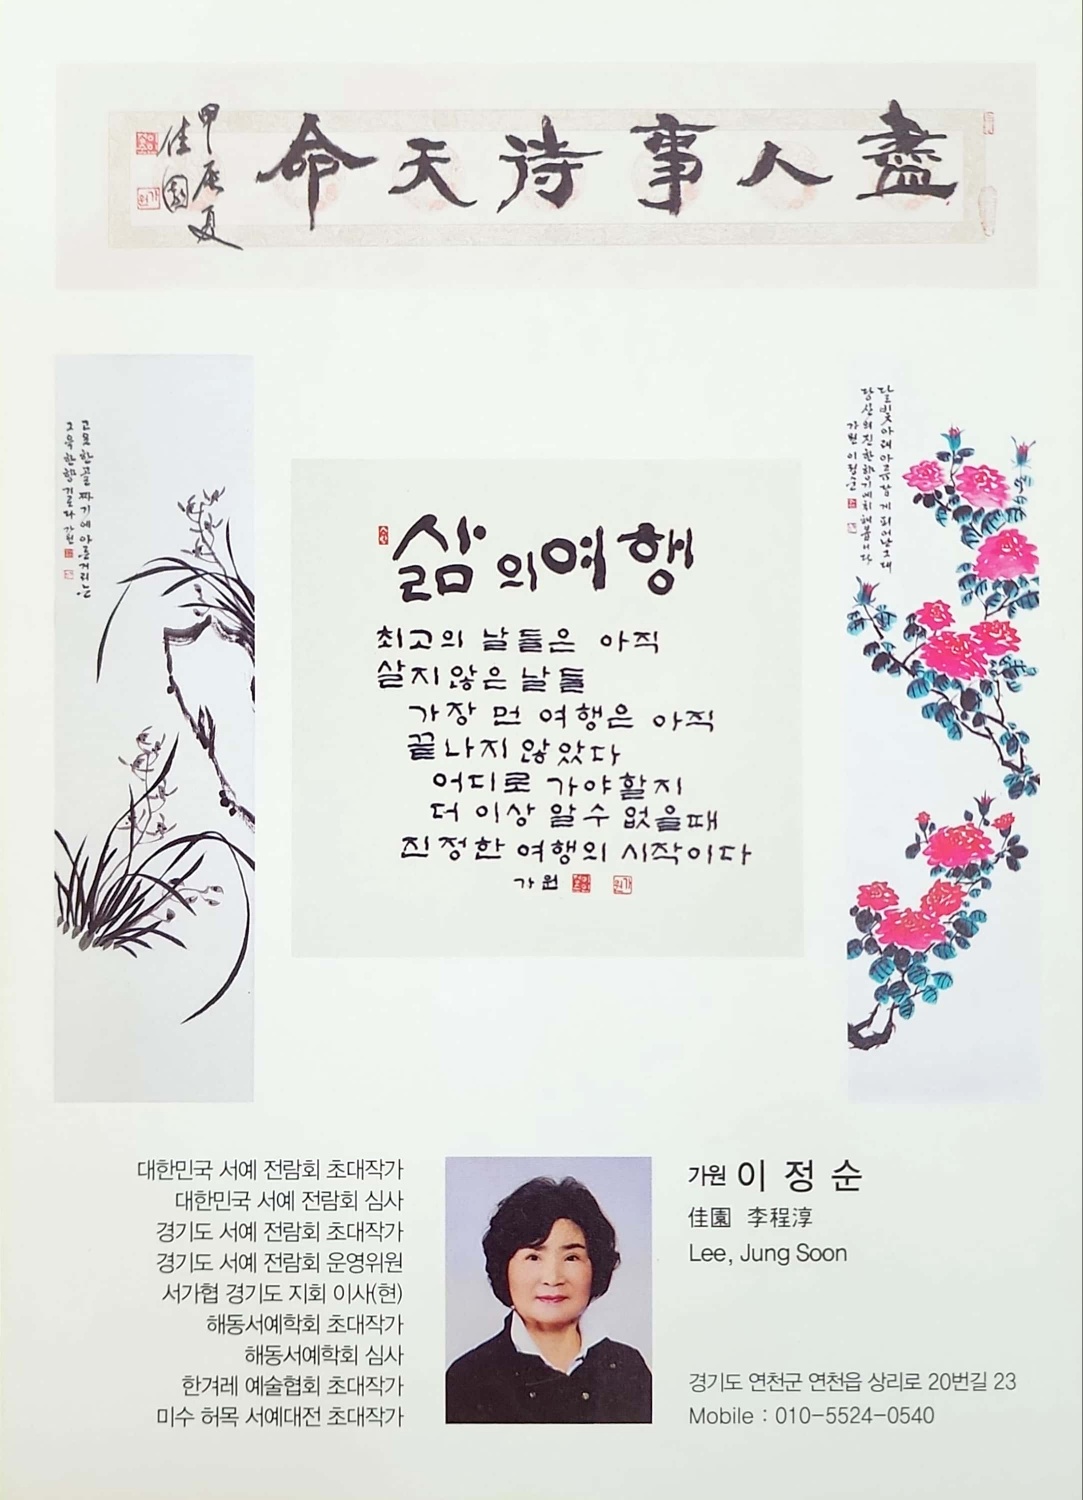 盡人事待天命
甲辰夏
佳園
고요한 골짜기에 아른거리는
그윽한 향기로다 가원
삶의 여행
최고의 날들은 아직
살지 않은 날들
가장 먼 여행은 아직
끝나지 않았다
어디로 가야할지
더 이상 알 수 없을때
진정한 여행의 시작이다
가원
달빛아래 아름답게 피어난 그대
당신의 진한 향기에 취해봅니다
가원 이정순
대한민국 서예 전람회 초대작가
대한민국 서예 전람회 심사
경기도 서예 전람회 초대작가
경기도 서예 전람회 운영위원
서가협 경기도 지회 이사(현)
해동서예학회 초대작가
해동서예학회 심사
한겨레 예술협회 초대작가
미수 허목 서예대전 초대작가
가원 이 정 순
佳園 李程淳
Lee, Jung Soon
경기도 연천군 연천읍 상리로 20번길 23
Mobile : 010-5524-0540